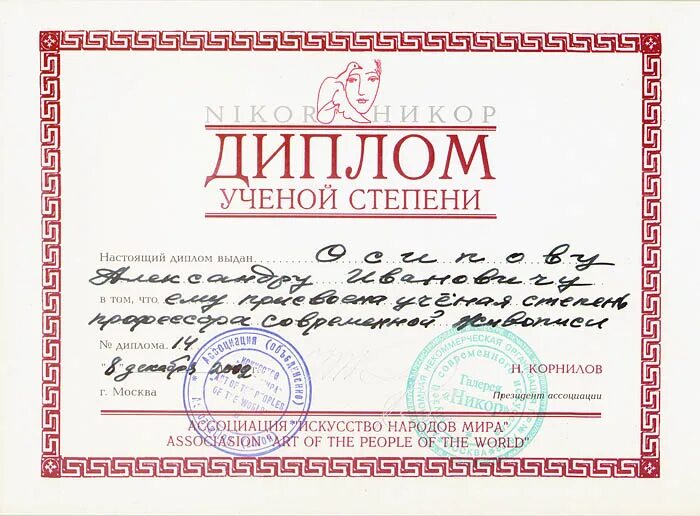 NIKOR НИКОР
ДИПЛОМ
УЧЕНОЙ СТЕПЕНИ
Настоящий диплом выдан Осипову
Александру Ивановичу
в том, что ему присвоена учёная степень
профессора современной живописи
№ диплома 14
"8" декабря 2002
Н. КОРНИЛОВ
г. Москва
Президент ассоциации
АССОЦИАЦИЯ "ИСКУССТВО НАРОДОВ МИРА"
ASSOCIASION "ART OF THE PEOPLE OF THE WORLD"
Ассоциация (объединение)
ART OF THE PEOPLES
OF THE WORLD
Галерея
"Никор"
МОСКВА